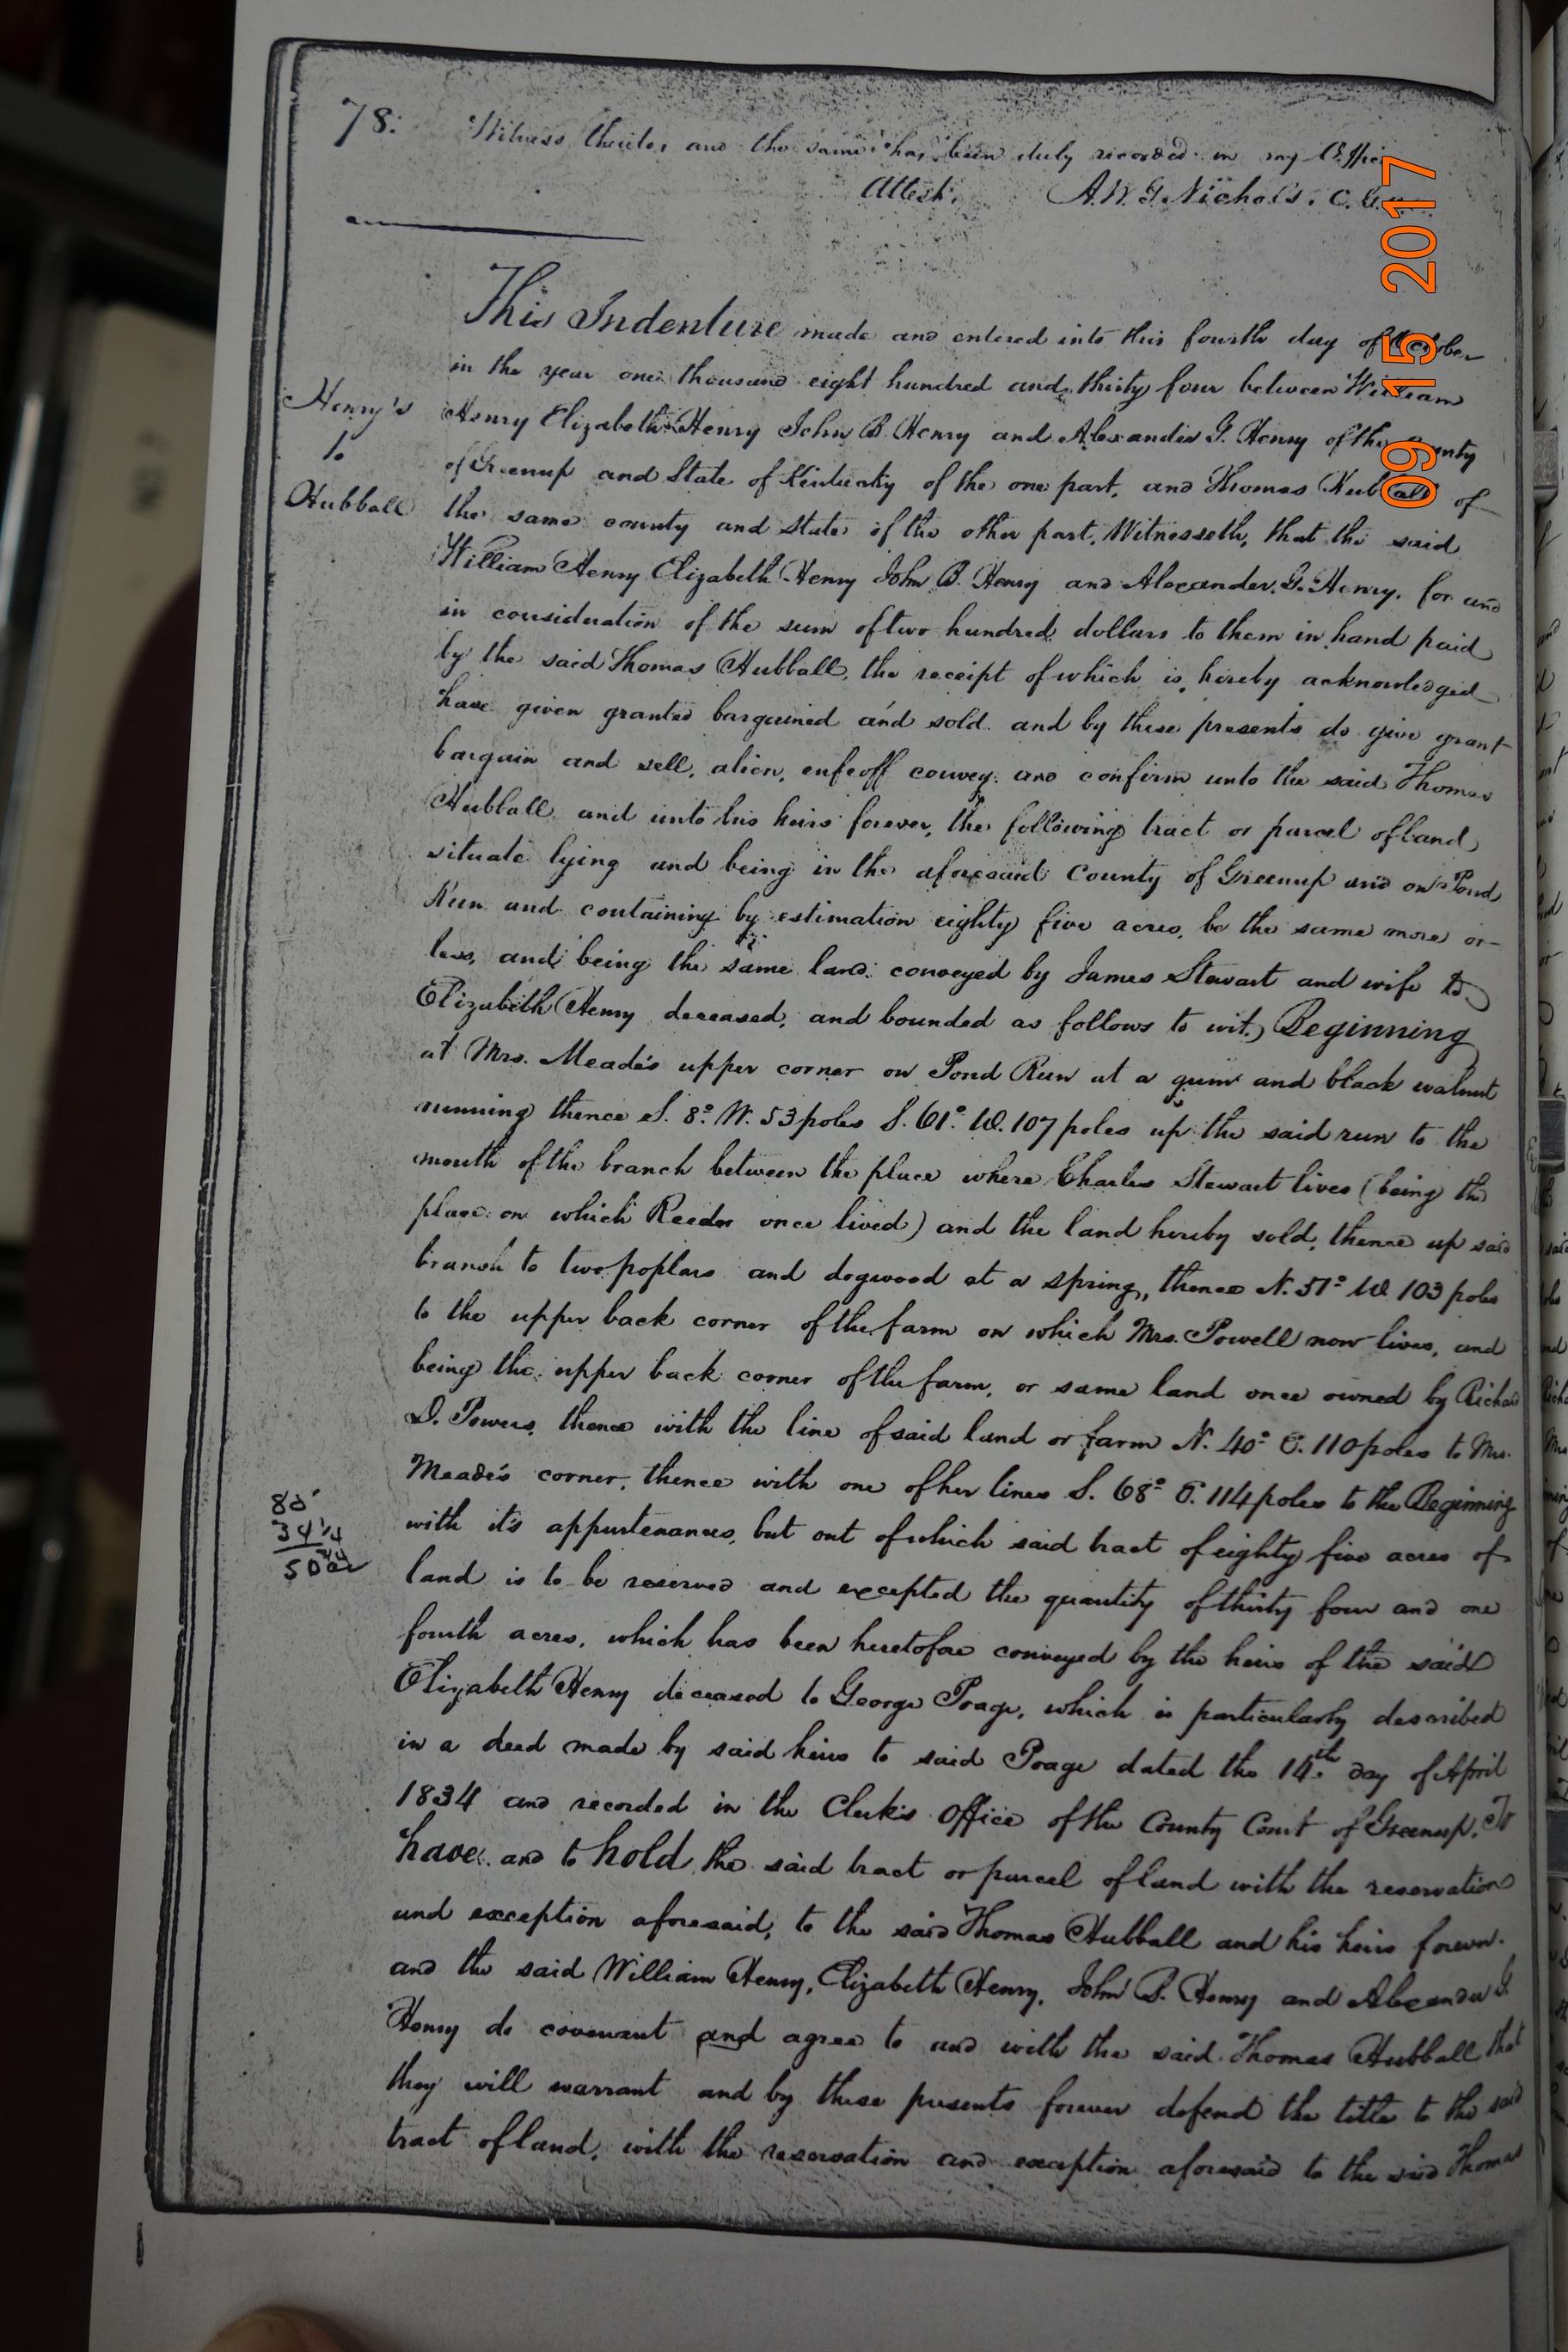 78.
Witness thereto, and the same has been duly recorded in my Office
Attest. A. W. G. Nichols. C. G.
This Indenture made and entered into this fourth day of October
in the year one thousand eight hundred and thirty four between William
Henry's
Henry Elizabeth Henry John B. Henry and Alexander G. Henry of the County
to
of Greenup and State of Kentucky of the one part, and Thomas Hubball of
Hubball
the same county and State of the other part, Witnesseth, that the said
William Henry Elizabeth Henry John B. Henry and Alexander. G. Henry. for and
in consideration of the sum of two hundred dollars to them in hand paid
by the said Thomas Hubball, the receipt of which is hereby acknowledged
have given granted bargained and sold and by these presents do give grant
bargain and sell, alien, enfeoff convey and confirm unto the said Thomas
Hubball and unto his heirs forever, the following tract or parcel of land
situate lying and being in the aforesaid County of Greenup and on Pond
Run and containing by estimation eighty five acres, be the same more or
less, and being the same land conveyed by James Stewart and wife to
Elizabeth Henry deceased, and bounded as follows to wit.) Beginning
at Mrs. Meade's upper corner on Pond Run at a gum and black walnut
running thence S. 8° W. 53 poles S. 61° W. 107 poles up the said run to the
mouth of the branch between the place where Charles Stewart lives (being the
place on which Reeder once lived) and the land hereby sold, thence up said
branch to two poplars and dogwood at a spring, thence N. 51° W 103 poles
to the upper back corner of the farm on which Mrs. Powell now lives, and
being the upper back corner of the farm, or same land once owned by Richard
D. Powers, thence with the line of said land or farm N. 40° E. 110 poles to Mrs.
Meade's corner, thence with one of her lines S. 68° E. 114 poles to the Beginning
85
34 1/4
50 3/4
with it's appurtenances, but out of which said tract of eighty five acres of
land is to be reserved and excepted the quantity of thirty four and one
fourth acres, which has been heretofore conveyed by the heirs of the said
Elizabeth Henry deceased to George Poage, which is particularly described
in a deed made by said heirs to said Poage dated the 14th day of April
1834 and recorded in the Clerk's Office of the County Court of Greenup. To
have and to hold the said tract or parcel of land with the reservation
and exception aforesaid, to the said Thomas Hubball and his heirs forever.
and the said William Henry, Elizabeth Henry, John B. Henry and Alexander G.
Henry do covenant and agree to and with the said Thomas Hubball that
they will warrant and by these presents forever defend the title to the said
tract of land, with the reservation and exception aforesaid to the said Thomas
09 15 2017